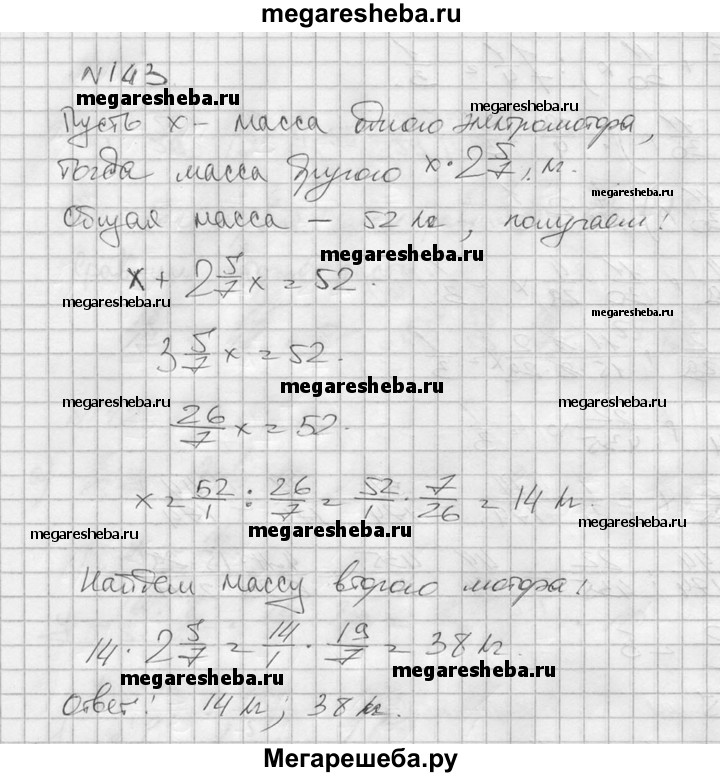 megaresheba.ru
N143
megaresheba.ru megaresheba.ru
Пусть x - масса одного электромотора,
тогда масса другого x · 2 5/7, кг.
megaresheba.ru
Общая масса - 52 кг, получаем:
megaresheba.ru
x + 2 5/7 x = 52.
megaresheba.ru megaresheba.ru
3 5/7 x = 52.
megaresheba.ru
megaresheba.ru megaresheba.ru
26/7 x = 52.
x = 52/1 : 26/7 = 52/1 · 7/26 = 14 кг.
megaresheba.ru megaresheba.ru megaresheba.ru
Найдем массу второго мотора:
14 · 2 5/7 = 14/1 · 19/7 = 38 кг.
megaresheba.ru megaresheba.ru
Ответ: 14 кг; 38 кг.
Мегарешеба.ру